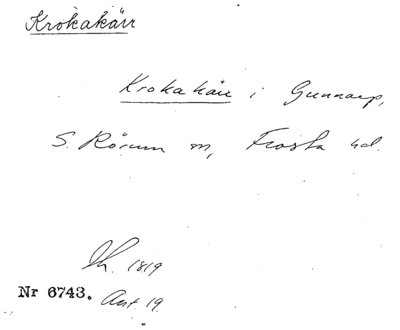 Krokakärr
Krokakärr i Gunnarp,
S. Rörum sn, Frosta hd.
1819
Nr 6743. Ant. 19.